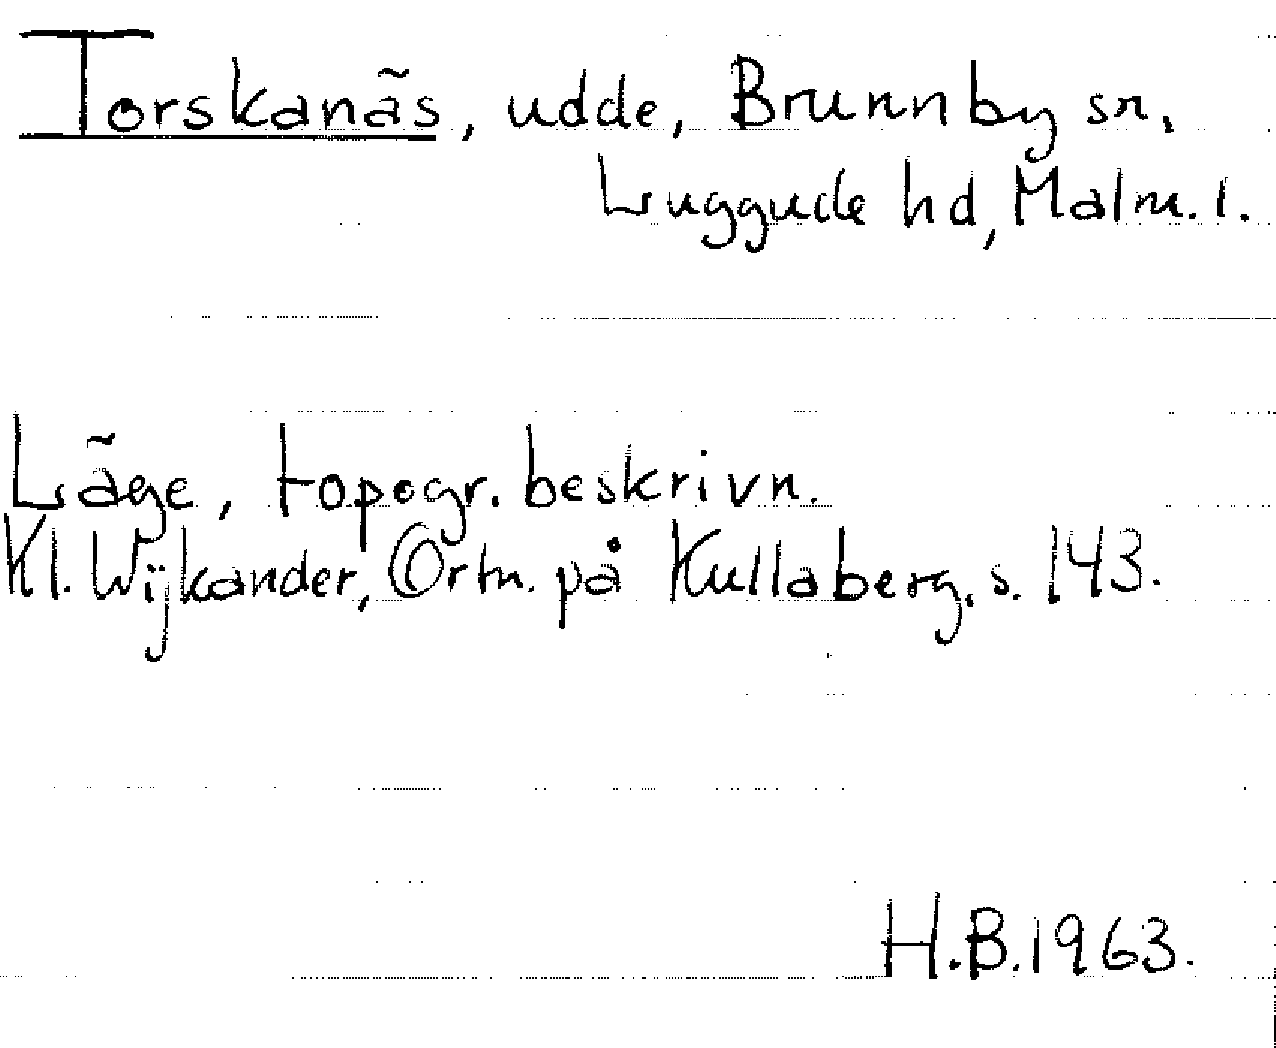 Torskanäs, udde, Brunnby sn.
Luggude hd, Malm. l.
Läge, topogr. beskrivn.
Kl. Wijkander, Ortn. på Kullaberg, s. 143.
H.B. 1963.